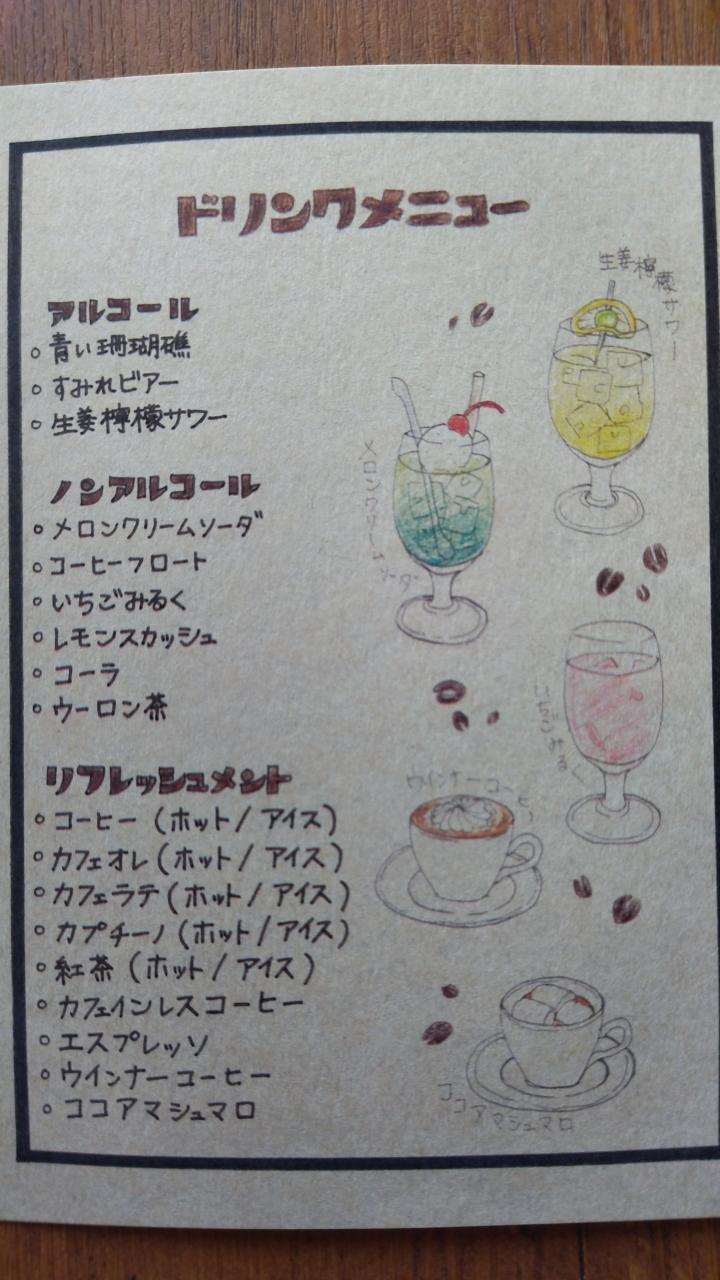 ドリンクメニュー
アルコール
○ 青い珊瑚礁
○ すみれビアー
○ 生姜檸檬サワー
ノンアルコール
○ メロンクリームソーダ
○ コーヒーフロート
○ いちごみるく
○ レモンスカッシュ
○ コーラ
○ ウーロン茶
リフレッシュメント
○ コーヒー (ホット/アイス)
○ カフェオレ (ホット/アイス)
○ カフェラテ (ホット/アイス)
○ カプチーノ (ホット/アイス)
○ 紅茶 (ホット/アイス)
○ カフェインレスコーヒー
○ エスプレッソ
○ ウインナーコーヒー
○ ココアマシュマロ
生姜檸檬サワー
メロンクリームソーダ
いちごみるく
ウインナーコーヒー
ココアマシュマロ